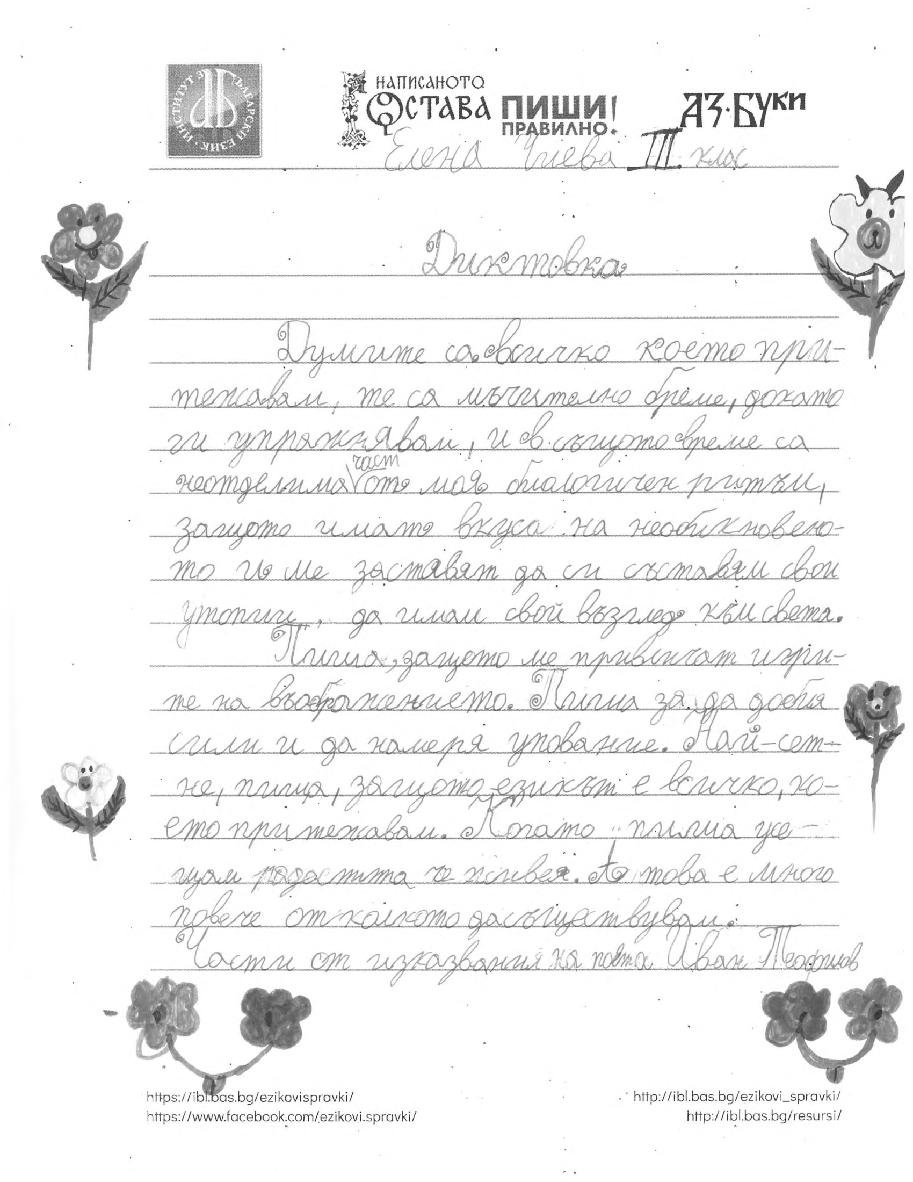 ИНСТИТУТ ЗА БЪЛГАРСКИ ЕЗИК
НАПИСАНОТО
ОСТАВА ПИШИ
ПРАВИЛНО!
АЗ·БУКИ
Елена Чиева III клас
Диктовка
Думите са всичко което при-
тежавам, те са мъчително бреме, докато
ги упражнявам, и в същото време са
част
неотделима от моя биологичен ритъм,
защото имат вкуса на необикновено-
то и ме заставят да си съставям свои
утопии, да имам свой възглед към света.
Пиша, защото ме привличат игри-
те на въображението. Пиша за да добия
сили и да намеря упование. Най-сет-
не, пиша, защото езикът е всичко, ко-
ето притежавам. Когато пиша усе-
щам радостта че живея. А това е много
повече от колкото да съществувам.
Части от изказвания на поета Иван Теофилов
https://ibl.bas.bg/ezikovispravki/
https://www.facebook.com/ezikovi.spravki/
http://ibl.bas.bg/ezikovi_spravki/
http://ibl.bas.bg/resursi/